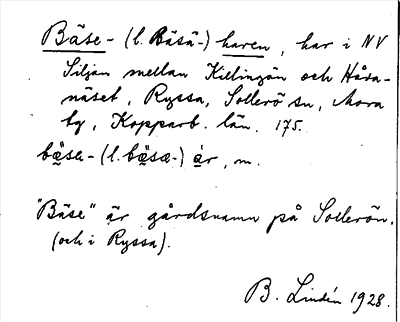 Bäse- (l. Bäsä-) haren, har i NV
Siljan mellan Killingön och Håra-
näset, Ryssa, Sollerö sn, Mora
tg, Kopparb. län. 175.
bäsa- (l. bäsæ-) ar, m.
"Bäse" är gårdsnamn på Sollerön.
(och i Ryssa).
B. Lindén 1928.